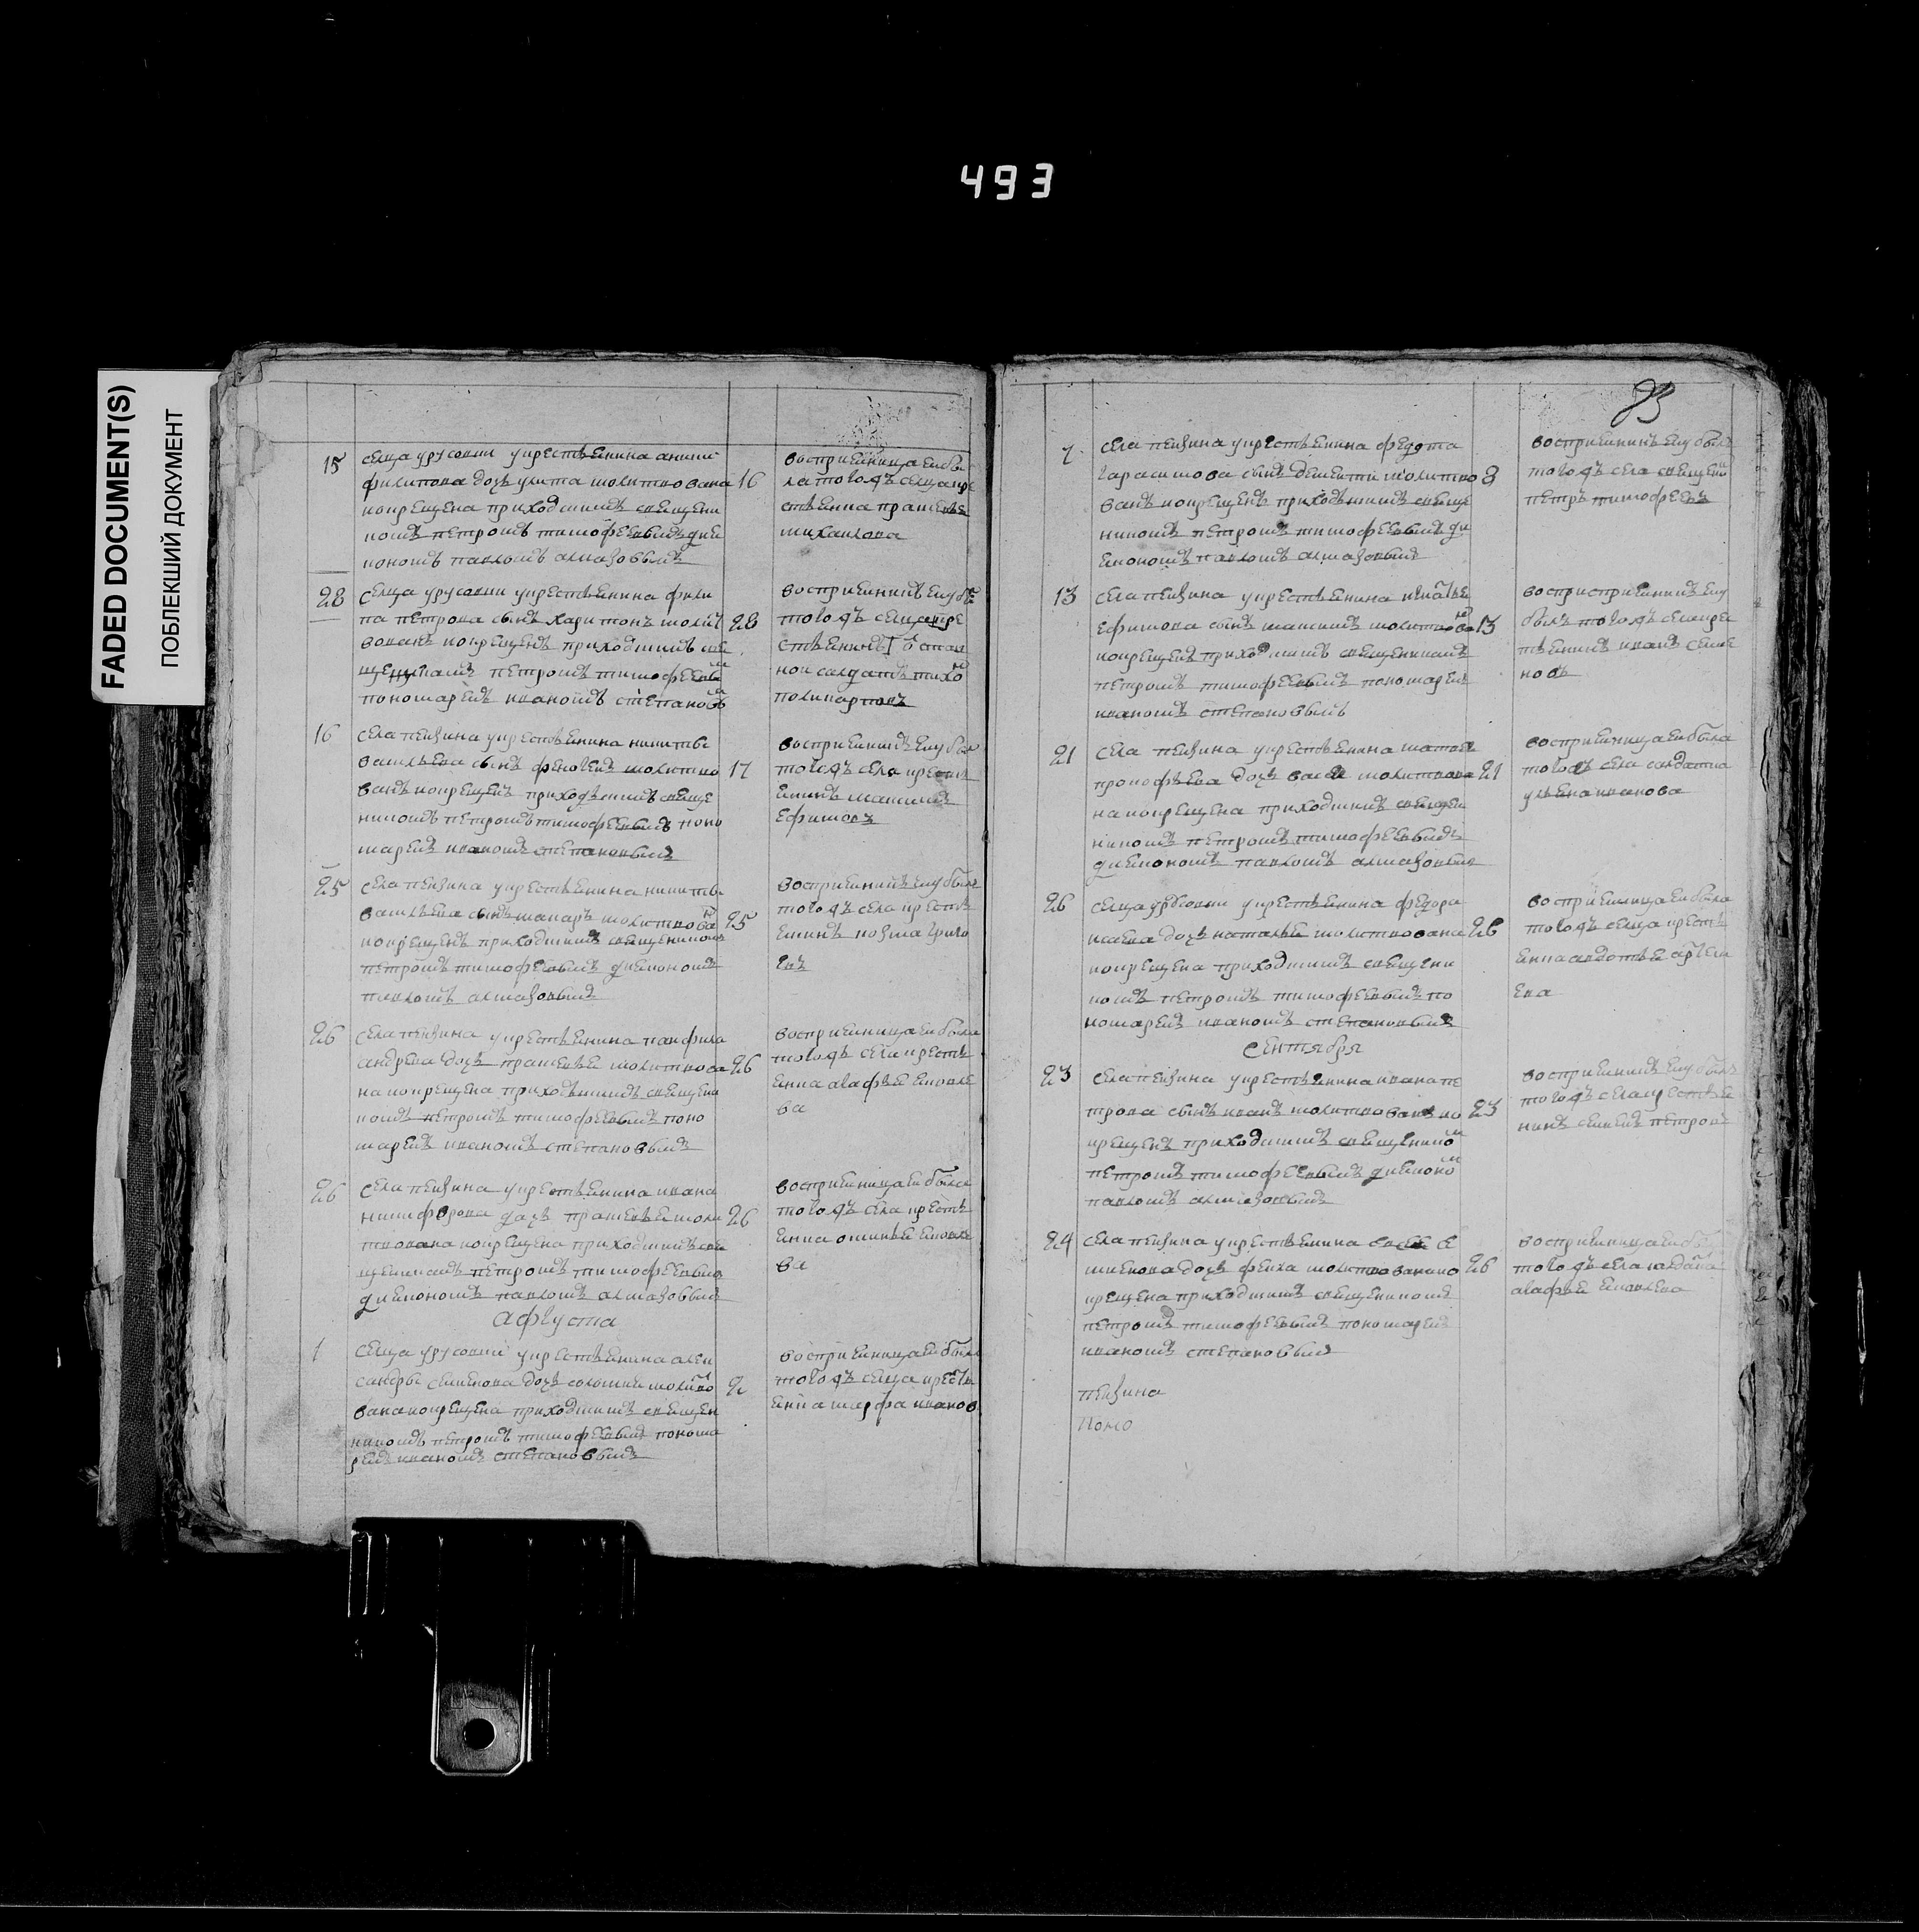 493
FADED DOCUMENT(S)
ПОБЛЕКШИЙ ДОКУМЕНТ
83
15
селца урусовки у крестьянина
филипова дочь улита молитвована
и окрещена приходским священи
ком петром тимофеевым дия
коном павлом алмазовым
16
восприемница ей бы
ла того ж селца кре
стьянка прасковья
михаилова
28
селца урусовки у крестьянина фили
па петрова сын харитон молит
вован и окрещен приходским свя
щеником петром тимофеевым
пономарем иваном степановым
28
восприемник ему бы
того ж селца кре
стьянин
ной салдат тихон
поликарпов
16
села пензина у крестьянина никиты
василева сын молитво
ван и окрещен приходским свяще
ником петром тимофеевым поно
марем иваном степановым
17
восприемник ему был
того ж села кресть
янин максим
ефимов
25
села пензина у крестьянина никиты
василева сын макар молитвован
и окрещен приходским священиком
петром тимофеевым дияконом
павлом алмазовым
25
восприемник ему был
того ж села кресть
янин козма григо
ев
26
села пензина у крестьянина панфила
андреева дочь прасковья молитвова
на и окрещена приходским священи
ком петром тимофеевым поно
марем иваном степановым
26
восприемница ей была
того ж села кресть
янка агафья яковле
ва
26
села пензина у крестьянина ивана
никифорова дочь прасковья моли
твована и окрещена приходским свя
щеником петром тимофеевым
дияконом павлом алмазовым
26
восприемница ей была
того ж села кресть
янка яковле
ва
августа
1
селца урусовки у крестьянина алек
сандры семенова дочь соломия молитво
вана и окрещена приходским священ
ником петром тимофеевым понома
рем иваном степановым
2
восприемница ей была
того ж селца кресть
янка марфа иванов
7
села пензина у крестьянина федота
гарасимова сын дементей молитво
ван и окрещен приходским свяще
ником петром тимофеевым ди
яконом павлом алмазовым
8
восприемник ему был
того ж села священи
петр тимофеев
13
села пензина у крестьянина игнатья
ефимова сын максим молитвован
и окрещен приходским священиком
петром тимофеевым пономарем
иваном степановым
13
восприсприемник ему
был того ж села крес
тьянин иван семе
нов
21
села пензина у крестьянина матвея
прокофьева дочь молитвова
на и окрещена приходским священ
ником петром тимофеевым
дияконом павлом алмазовым
21
восприемница ей была
того ж села салдатка
ульяна иванова
26
селца урусовки у крестьянина федора
исаева дочь наталья молитвована
и окрещена приходским священи
ком петром тимофеевым по
номарем иваном степановым
26
восприемница ей была
того ж селца кресть
янка авдотья артем
ева
сентября
23
села пензина у крестьянина ивана пе
трова сын иван молитвован и о
крещен приходским священиком
петром тимофеевым дияконом
павлом алмазовым
23
восприемник ему был
того ж села крестья
нин петров
24
села пензина у крестьянина
дочь фекла молитвована и о
крещена приходским священиком
петром тимофеевым пономарем
иваном степановым
26
восприемница ей бы
того ж села
агафья яковлева
пензина
поно